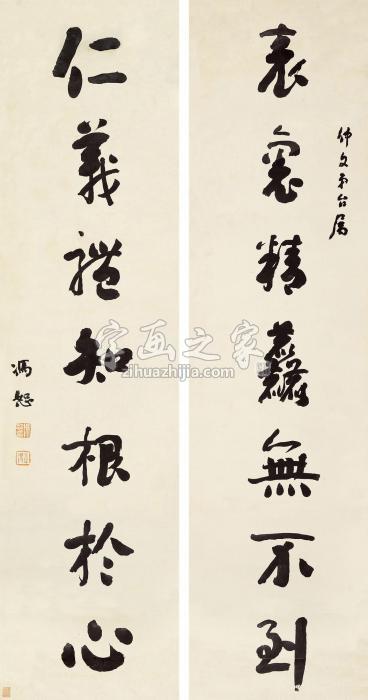 仲文弟台屬
表裏精麤無不到
仁義禮知根於心
馮恕
字画之家
zihuazhijia.com